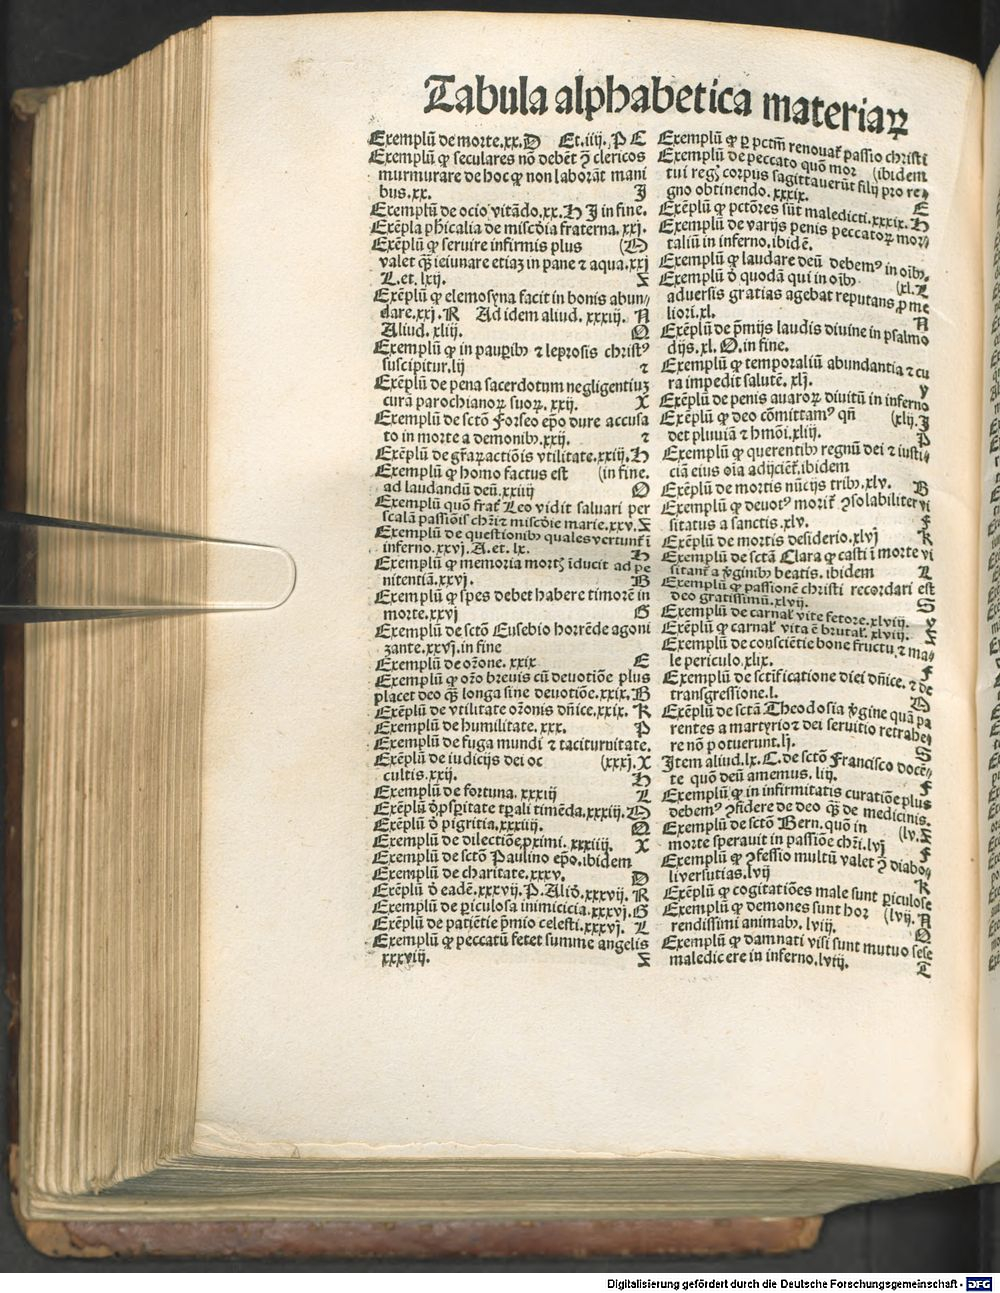 Tabula alphabetica materiaꝝ
Exemplū de morte.xx.D Et.iiij.P E
Exemplū ꝙ seculares nō debēt ꝯ clericos
murmurare de hoc ꝙ non laborāt mani
bus.xx. J
Exemplū de ocio vitādo.xx.H J in fine.
Exēpla phicalia de miscdia fraterna.xxj.
Exēplū ꝙ seruire infirmis plus (G
valet qꝫ ieiunare etiaꝫ in pane ⁊ aqua.xxj
L.et.lxij. Z
Exēplū ꝙ elemosyna facit in bonis abun⸗
dare.xxj.R Ad idem aliud.xxxiij. A
Aliud.xliij. Q
Exemplū ꝙ in pauꝑibꝰ ⁊ leprosis christꝰ
suscipitur.lij ⁊
Exēplū de pena sacerdotum negligentiuꝫ
curā parochianoꝝ suoꝝ.xxij. X
Exemplū de sctō Forseo epō dure accusa
to in morte a demonibꝰ.xxij. ⁊
Exēplū de grāꝝ actiōis vtilitate.xxiij.H
Exemplū ꝙ homo factus est (in fine.
ad laudandū deū.xxiiij O
Exemplū quō frat̄ Leo vidit saluari per
scalā passiōis chr̄i ⁊ miscdie marie.xxv.Z
Exemplū de questionibꝰ quales vertunt̄ ī
inferno.xxvj.A.et.lx. H
Exemplū ꝙ memoria mortꝭ īducit ad pe
nitentiā.xxvj. B
Exemplū ꝙ spes debet habere timorē in
morte.xxvj G
Exemplū de sctō Eusebio horrēde agoni
zante.xxvj.in fine
Exemplū de orōne.xxix E
Exemplū ꝙ orō breuis cū deuotiōe plus
placet deo qꝫ longa sine deuotiōe.xxix.B
Exēplū de vtilitate orōnis dn̄ice.xxix. K
Exemplū de humilitate.xxx. P
Exemplū de fuga mundi ⁊ taciturnitate.
Exēplū de iudicijs dei oc (xxxj.X
cultis.xxij. H
Exemplū de fortuna.xxxiij L
Exēplū ꝺ ꝓsꝑitate tꝑali timēda.xxxiij.G
Exēplū ꝺ pigritia.xxxiiij. Q
Exemplū de dilectiōe ꝓximi.xxxiiij. X
Exemplū de sctō Paulino epō.ibidem
Exemplū de charitate.xxxv. D
Exēplū ꝺ eadē.xxxvij.P.Aliō.xxxvij. R
Exemplū de ꝑiculosa inimicicia.xxxvj.G
Exēplū de patiētie p̄mio celesti.xxxvj. L
Exemplū ꝙ peccatū fetet summe angelis
xxxviij. Z
Exemplū ꝙ ꝑ pctm̄ renouat̄ passio christi
Exemplū de peccato quō mor (ibidem
tui regꝭ corpus sagittauerūt filij pro re⸗
gno obtinendo.xxxix. E
Exēplū ꝙ pctōres sūt maledicti.xxxix.H
Exemplū de varijs penis peccatoꝝ mor⸗
taliū in inferno.ibidē.
Exemplū ꝙ laudare deū debemꝰ in oibꝰ.
Exemplū ꝺ quodā qui in oibꝰ (xl.L
aduersis gratias agebat reputans ꝓ me
liori.xl. A
Exēplū de p̄mijs laudis diuine in psalmo
dijs.xl.O.in fine.
Exemplū ꝙ temporaliū abundantia ⁊ cu
ra impedit salutē.xlj. y
Exēplū de penis auaroꝝ diuitū in inferno
Exēplū ꝙ deo cōmittamꝰ qn̄ (xlij.J
det pluuiā ⁊ hmōi.xliij. P
Exemplū ꝙ querentibꝰ regnū dei ⁊ iusti⸗
ciā eius oīa adijciēt̄.ibidem
Exēplū de mortis nūcijs tribꝰ.xlv. B
Exemplū ꝙ deuotꝰ morit̄ ꝯsolabiliter vi
sitatus a sanctis.xlv. F
Exēplū de mortis desiderio.xlvj K
Exemplū de sctā Clara ꝙ casti ī morte vi
sitant̄ a v̄ginibꝰ beatis.ibidem L
Exemplū ꝙ passionē christi recordari est
deo gratissimū.xlvij. S
Exemplū de carnal̄ vite fetore.xlviij. F
Exēplū ꝙ carnal̄ vita ē brutal̄.xlviij. Z
Exemplū de consciētie bone fructu ⁊ ma⸗
le periculo.xlix. F
Exemplū de sctificatione diei dn̄ice.⁊ de
transgressione.l. D
Exēplū de sctā Theodosia v̄gine quā pa
rentes a martyrio ⁊ dei seruitio retrahe⸗
re nō potuerunt.lj. S
Item aliud.lx.C.de sctō Francisco docē⸗
te quō deū amemus.liij. F
Exemplū ꝙ in infirmitatis curatiōe plus
debemꝰ ꝯfidere de deo qꝫ de medicinis.
Exemplū de sctō Bern.quō in (lv.Z
morte sperauit in passiōe chr̄i.lvj F
Exemplū ꝙ ꝯfessio multū valet ꝯ diabo⸗
li versutias.lvij K
Exēplū ꝙ cogitatiōes male sunt ꝑiculose
Exemplū ꝙ demones sunt hor (lvij.A
rendissimi animabꝰ.lviij. O
Exemplū ꝙ damnati visi sunt mutuo sese
maledicere in inferno.lviij. T
Digitalisierung gefördert durch die Deutsche Forschungsgemeinschaft - DFG